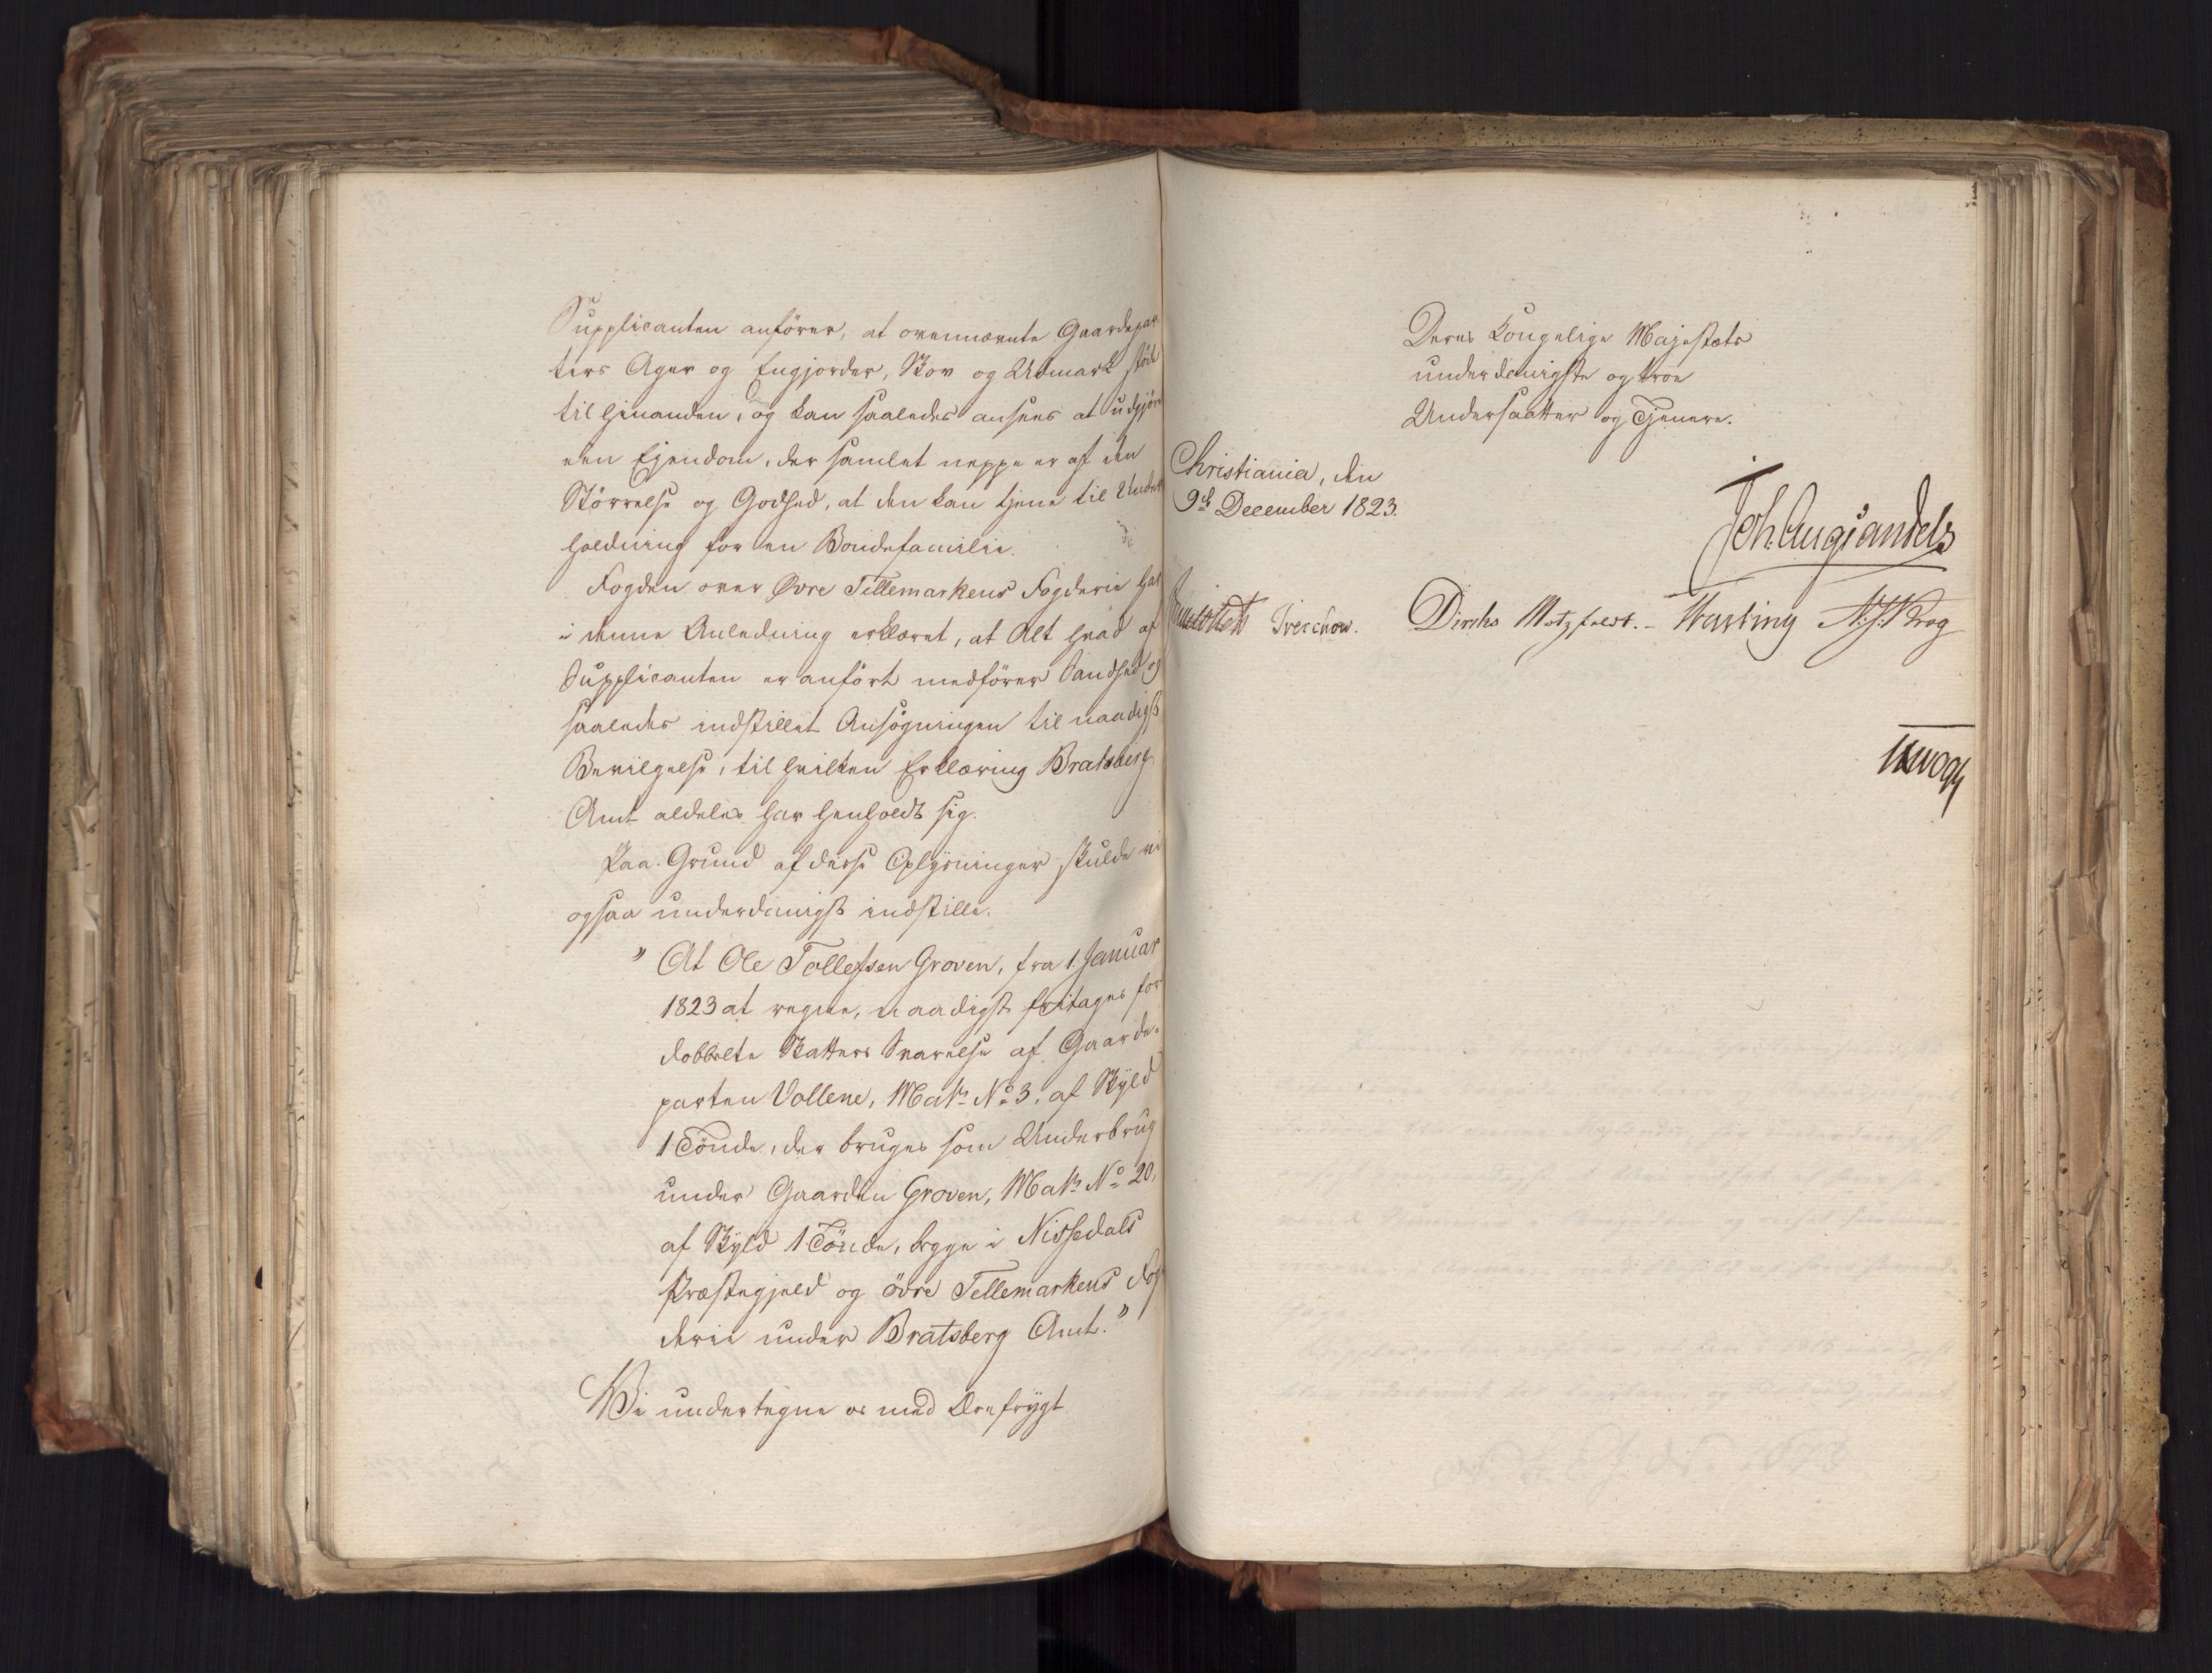 Supplicanten anfører, at ovennævnte Gaardepar
ters Ager og Engjorder, Skov og Udmark støde
til hinanden, og kan saaledes ansees at udgjøre
een Ejendom, der samlet neppe er af den
Størrelse og Godhed, at den kan tjene til Under
holdning for en Bondefamilie.
Fogden over Øvre Tellemarkens Fogderie har
i denne Anledning erklæret, at Alt hvad af
Supplicanten er anført medfører Sandhed og
saaledes indstillet Ansøgningen til naadigst
Bevilgelse, til hvilken Erklæring Bratsberg
Amt aldeles har henholdt sig.
Paa Grund af disse Oplysninger skulde vi
ogsaa underdanigst indstille.
" At Ole Tollefsen Groven, fra 1 Januar
1823 at regne, naadigst fritages for
dobbelte Skatters Svarelse af Gaarde-
parten Vollene, Matr. No 3, af Skyld
1 Tønde, der bruges som Underbrug
under Gaarden Groven, Matr. No 20,
af Skyld 1 Tønde, begge i Nissedals
Præstegjeld og øvre Tellemarkens Fog
derie under Bratsberg Amt."
Vi undertegne os med Ærefrygt
Deres Kongelige Majestæts
underdanigste og troe
Undersaatter og Tjenere.
Christiania, den
9de December 1823.
Joh. Aug. Sandels
Treschow. Diriks Motzfeldt. - Fasting N. J. Krog